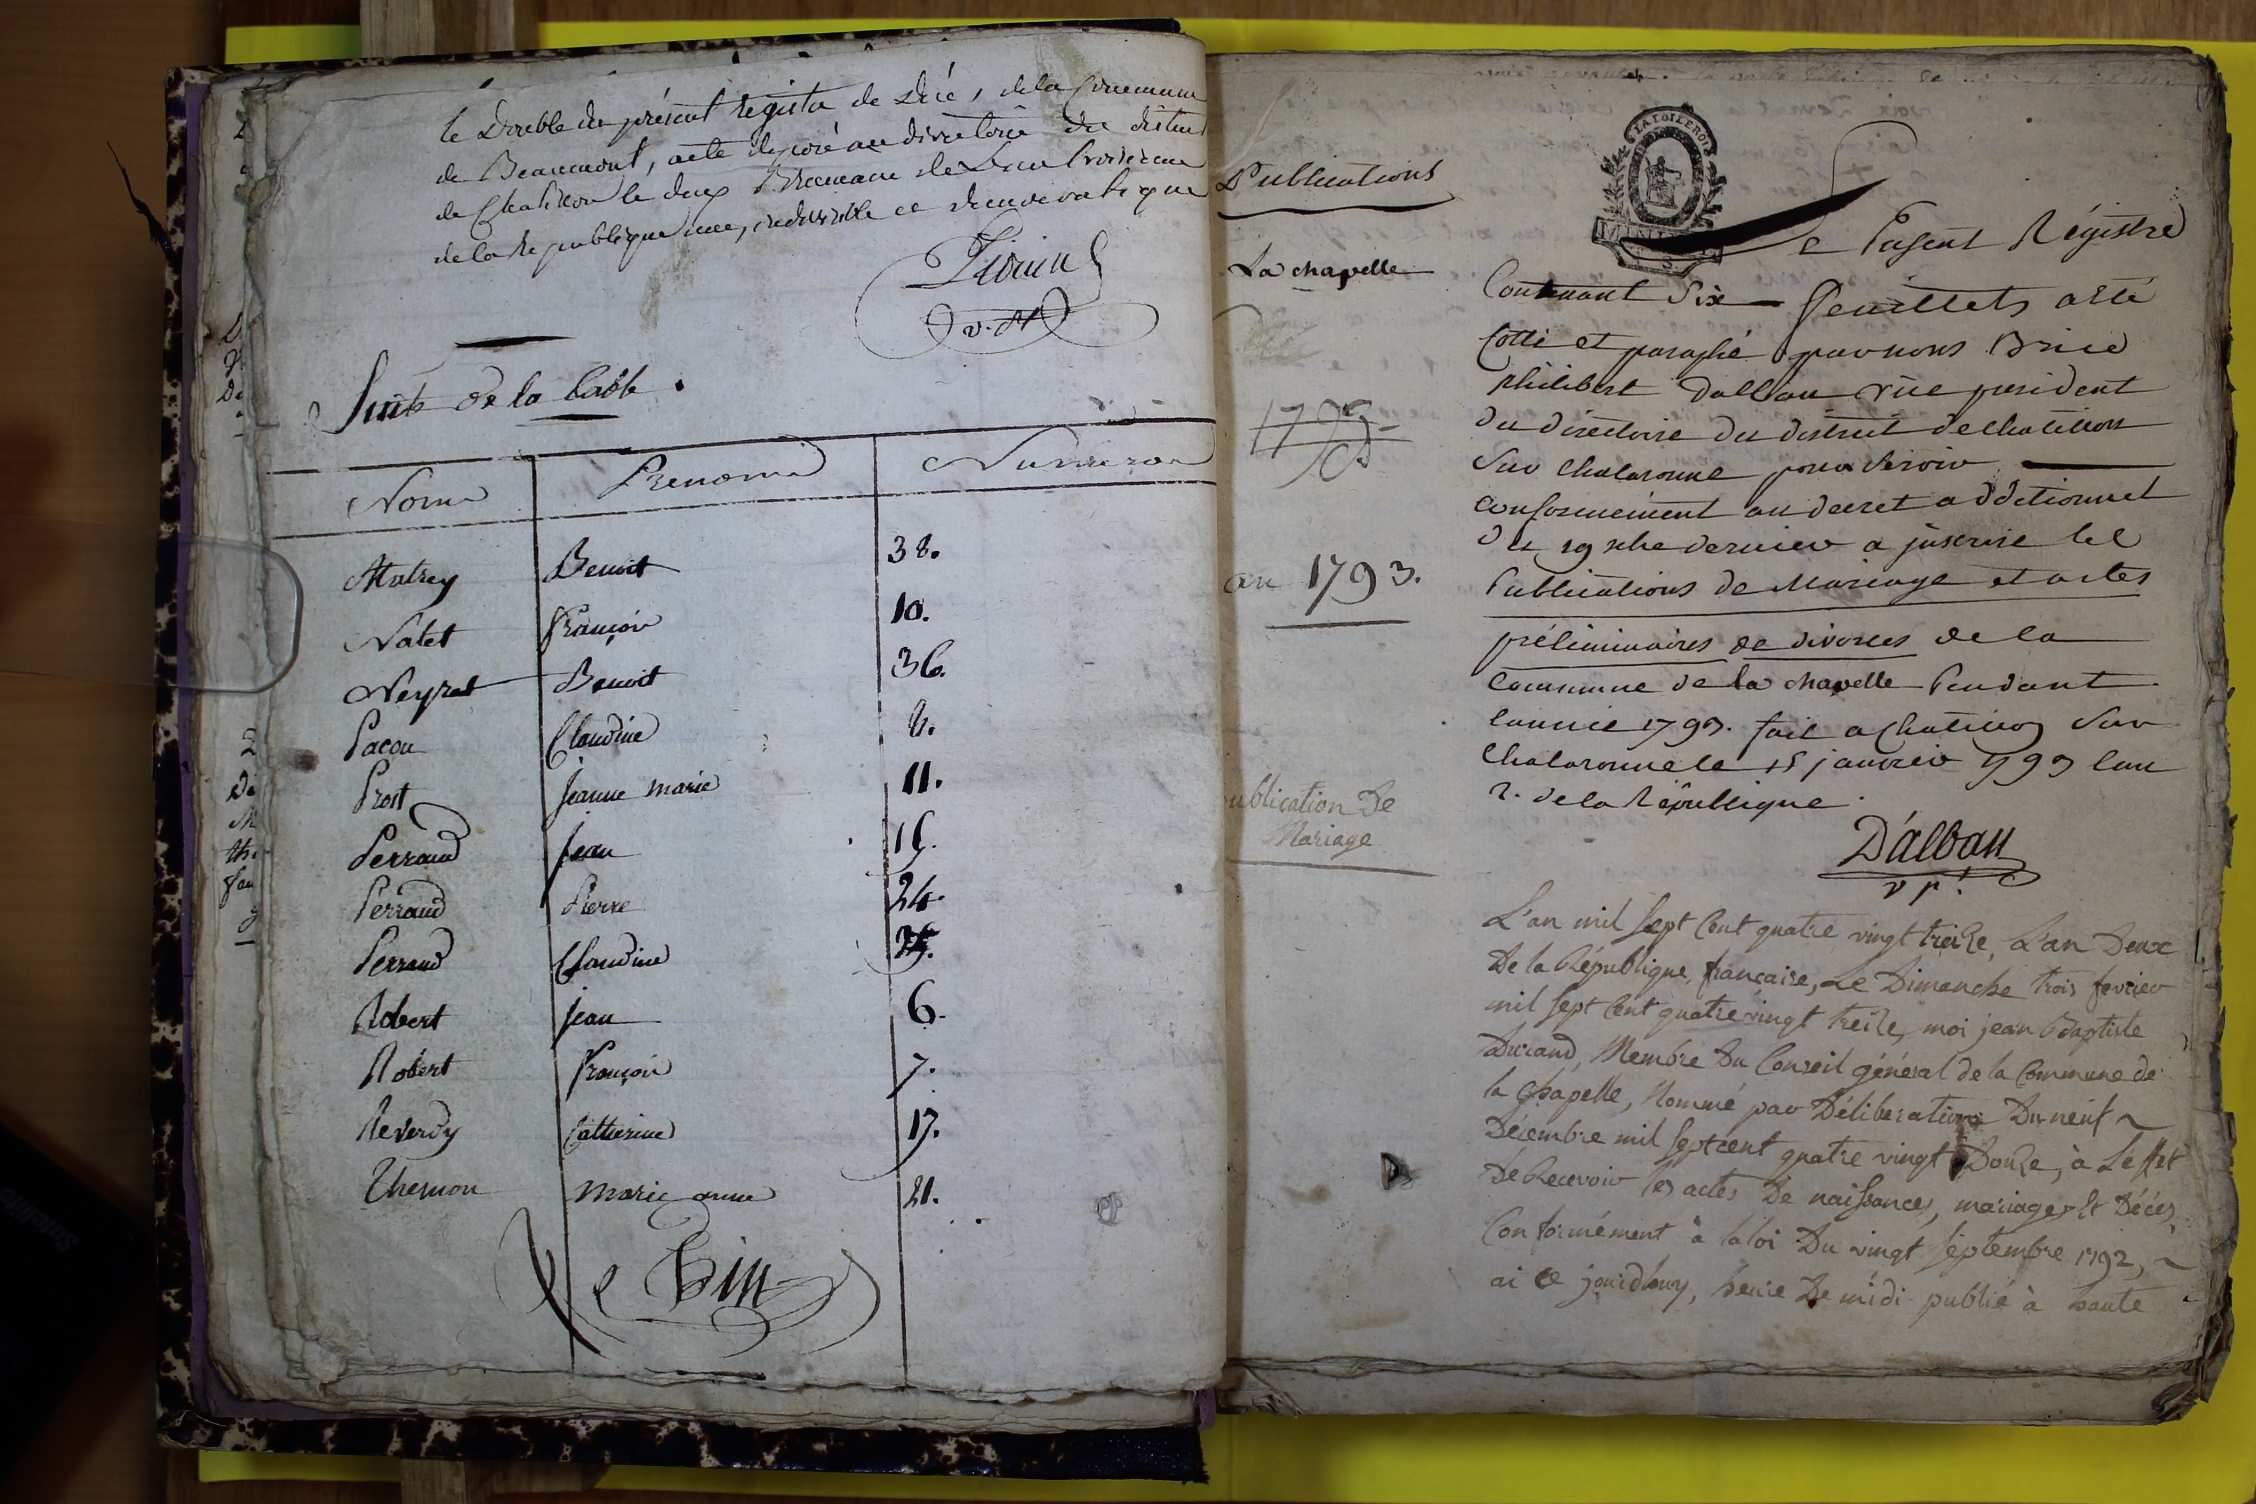 le Double du présent registre de décé, de la Commune
de Beaumont, acté déposé au directoire du district
de Chatillon le deux Brumaire de L'an troisieme
de la République une, indivisible et démocratique
Suite de la table.
Noms Prenoms Numeros
Mutrey Benoit 38.
Natet François 10.
Neyret Benoit 36.
Pacou Claudine 8.
Prost jeanne marie 11.
Perraud jean 16.
Perraud Pierre 24.
Perraud Claudine
Robert jean 6.
Robert François 7.
Reverdy Catherine 17.
Themon marie anne 21.
fin
Publications
La chapelle
1793
an 1793.
publication De
Mariage
LA LOI LE ROI
Le Présent Régistre
Contenant Six feuillets a été
Cotté et paraphé par nous Brice
philibert Dalban vice president
du directoire du district de chatillon
Sur Chalaronne pour servir
conformément au decret addetionnel
du 19 xbre dernier a inscrire les
Publications de Mariage et actes
préliminaires de divorces de la
Commune de la chapelle Pendant
l'année 1793. fait a Chatillon Sur
Chalaronne le 15 janvier 1793 l'an
2. de la République.
D'alban
v p!
L'an mil sept Cent quatre vingt treize, L'an Deux
De la République française, Le Dimanche trois fevrier
mil sept Cent quatre vingt treize, moi jean Baptiste
Durand, Membre Du Conseil général de la Commune de
la Chapelle, Nommé par Déliberation Du neuf ~
Décembre mil sept cent quatre vingt Douze, à L'effet
De Recevoir les actes De naissances, mariages Et Décès,
Conformément à la loi Du vingt septembre 1792, ~
ai Ce jourdhuy, heure De midi publié à haute